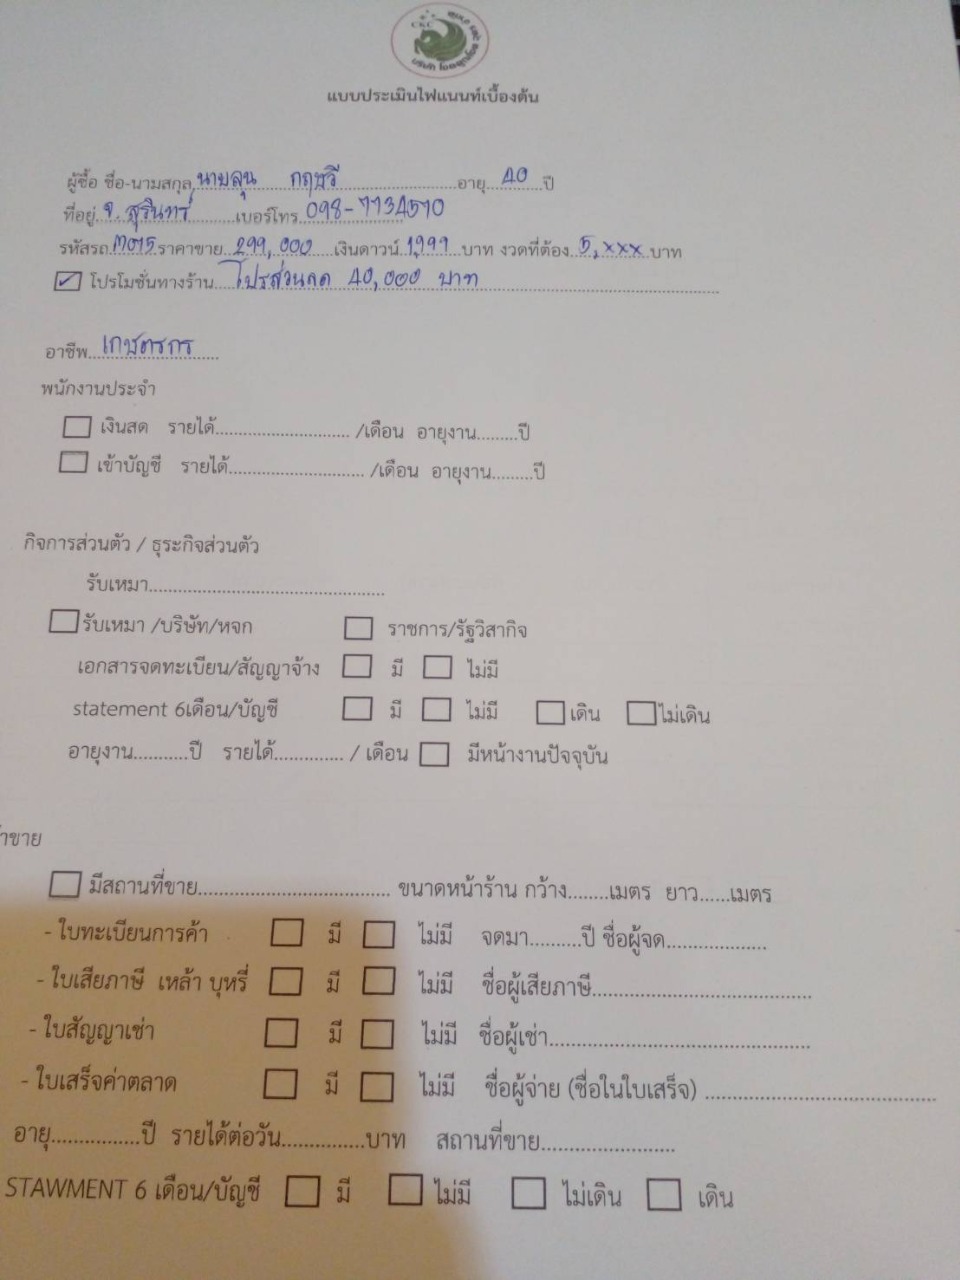 CKC
แบบประเมินไฟแนนท์เบื้องต้น
ผู้ซื้อ ชื่อ-นามสกุล นายลุน กฤษวี อายุ 40 ปี
ที่อยู่ จ. สุรินทร์ เบอร์โทร 098-7734570
รหัสรถ M075 ราคาขาย 299,000 เงินดาวน์ 1,999 บาท งวดที่ต้อง 5,xxx บาท
โปรโมชั่นทางร้าน โปรส่วนลด 40,000 บาท
อาชีพ เกษตรกร
พนักงานประจำ
เงินสด รายได้ /เดือน อายุงาน ปี
เข้าบัญชี รายได้ /เดือน อายุงาน ปี
กิจการส่วนตัว / ธุระกิจส่วนตัว
รับเหมา
รับเหมา /บริษัท/หจก ราชการ/รัฐวิสากิจ
เอกสารจดทะเบียน/สัญญาจ้าง มี ไม่มี
statement 6เดือน/บัญชี มี ไม่มี เดิน ไม่เดิน
อายุงาน ปี รายได้ / เดือน มีหน้างานปัจจุบัน
าขาย
มีสถานที่ขาย ขนาดหน้าร้าน กว้าง เมตร ยาว เมตร
- ใบทะเบียนการค้า มี ไม่มี จดมา ปี ชื่อผู้จด
- ใบเสียภาษี เหล้า บุหรี่ มี ไม่มี ชื่อผู้เสียภาษี
- ใบสัญญาเช่า มี ไม่มี ชื่อผู้เช่า
- ใบเสร็จค่าตลาด มี ไม่มี ชื่อผู้จ่าย (ชื่อในใบเสร็จ)
อายุ ปี รายได้ต่อวัน บาท สถานที่ขาย
STAWMENT 6 เดือน/บัญชี มี ไม่มี ไม่เดิน เดิน